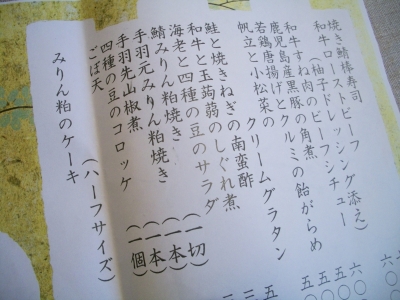 焼き鯖棒寿司
和牛ローストビーフ
（柚子ドレッシング添え）
和牛すね肉のビーフシチュー
鹿児島産黒豚の角煮
若鶏唐揚げとクルミの飴がらめ
帆立と小松菜のクリームグラタン
鮭と焼きねぎの南蛮酢
和牛と玉蒟蒻のしぐれ煮
海老と四種の豆のサラダ
鯖みりん粕焼き（一切）
手羽元みりん粕焼き（一本）
手羽先山椒煮（一本）
四種の豆のコロッケ（一個）
ごぼ天
みりん粕のケーキ（ハーフサイズ）